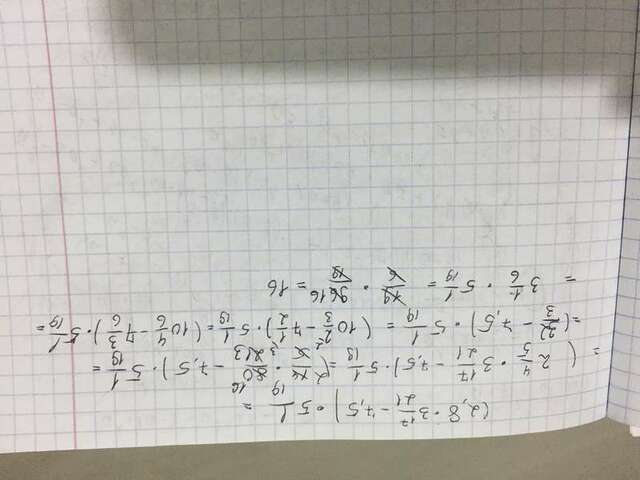 (2,8 · 3 17/21 - 7,5) · 5 1/19 =
= (2 4/5 · 3 17/21 - 7,5) · 5 1/19 = (2 14/5 · 80 16/21 3 - 7,5) · 5 1/19 =
= (32/3 - 7,5) · 5 1/19 = (10 2/3 - 7 1/2) · 5 1/19 = (10 4/6 - 7 3/6) · 5 1/19 =
= 3 1/6 · 5 1/19 = 19/6 · 96 16/19 = 16